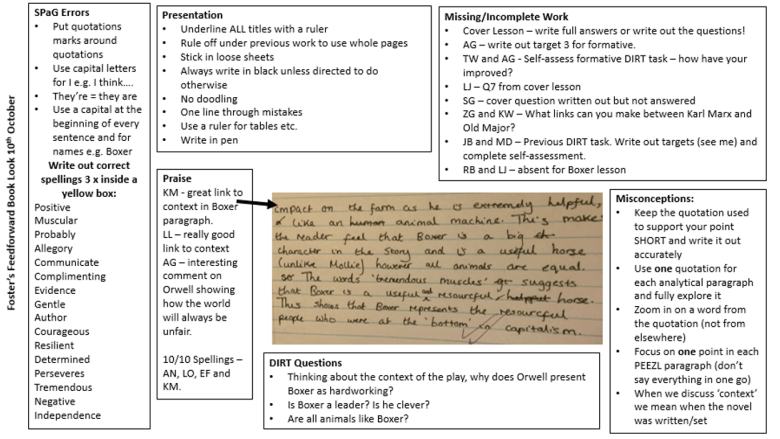 Foster's Feedforward Book Look 10th October
SPaG Errors
• Put quotations
marks around
quotations
• Use capital letters
for I e.g. I think….
• They're = they are
• Use a capital at the
beginning of every
sentence and for
names e.g. Boxer
Write out correct
spellings 3 x inside a
yellow box:
Positive
Muscular
Probably
Allegory
Communicate
Complimenting
Evidence
Gentle
Author
Courageous
Resilient
Determined
Perseveres
Tremendous
Negative
Independence
Presentation
• Underline ALL titles with a ruler
• Rule off under previous work to use whole pages
• Stick in loose sheets
• Always write in black unless directed to do
otherwise
• No doodling
• One line through mistakes
• Use a ruler for tables etc.
• Write in pen
Missing/Incomplete Work
• Cover Lesson – write full answers or write out the questions!
• AG – write out target 3 for formative.
• TW and AG - Self-assess formative DIRT task – how have your
improved?
• LJ – Q7 from cover lesson
• SG – cover question written out but not answered
• ZG and KW – What links can you make between Karl Marx and
Old Major?
• JB and MD – Previous DIRT task. Write out targets (see me) and
complete self-assessment.
• RB and LJ – absent for Boxer lesson
Praise
KM - great link to
context in Boxer
paragraph.
LL – really good
link to context
AG – interesting
comment on
Orwell showing
how the world
will always be
unfair.
10/10 Spellings –
AN, LO, EF and
KM.
impact on the farm as he is extremely helpful,
like an human animal machine. This makes
the reader feel that Boxer is a big
character in the story and is a useful horse
(unlike Mollie) however all animals are equal.
so The words 'tremendous muscles' suggests
that Boxer is a useful and resourceful helpful horse.
This shows that Boxer represents the resourceful
people who were at the 'bottom' in capitalism.
DIRT Questions
• Thinking about the context of the play, why does Orwell present
Boxer as hardworking?
• Is Boxer a leader? Is he clever?
• Are all animals like Boxer?
Misconceptions:
• Keep the quotation used
to support your point
SHORT and write it out
accurately
• Use one quotation for
each analytical paragraph
and fully explore it
• Zoom in on a word from
the quotation (not from
elsewhere)
• Focus on one point in each
PEEZL paragraph (don't
say everything in one go)
• When we discuss 'context'
we mean when the novel
was written/set